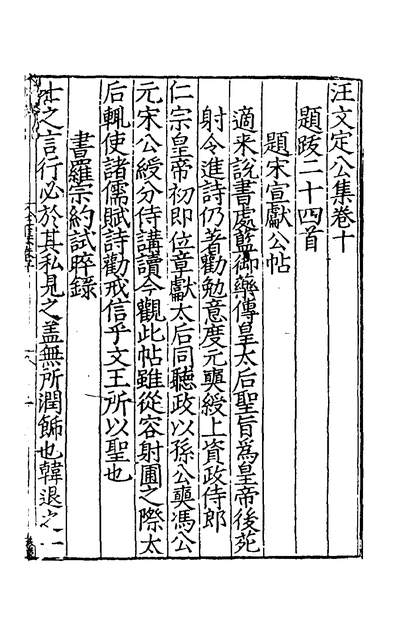 汪文定公集卷十
題跋二十四首
題宋宣獻公帖
適来說書處藍御藥傳皇太后聖旨爲皇帝後苑
射令進詩仍著勸勉意度元奭綬上資政侍郎
仁宗皇帝初即位章獻太后同聽政以孫公奭馮公
元宋公綬分侍講讀今觀此帖雖從容射圃之際太
后輒使諸儒賦詩勸戒信乎文王所以聖也
書羅宗約試晬錄
士之言行必於其私見之盖無所潤飾也韓退之